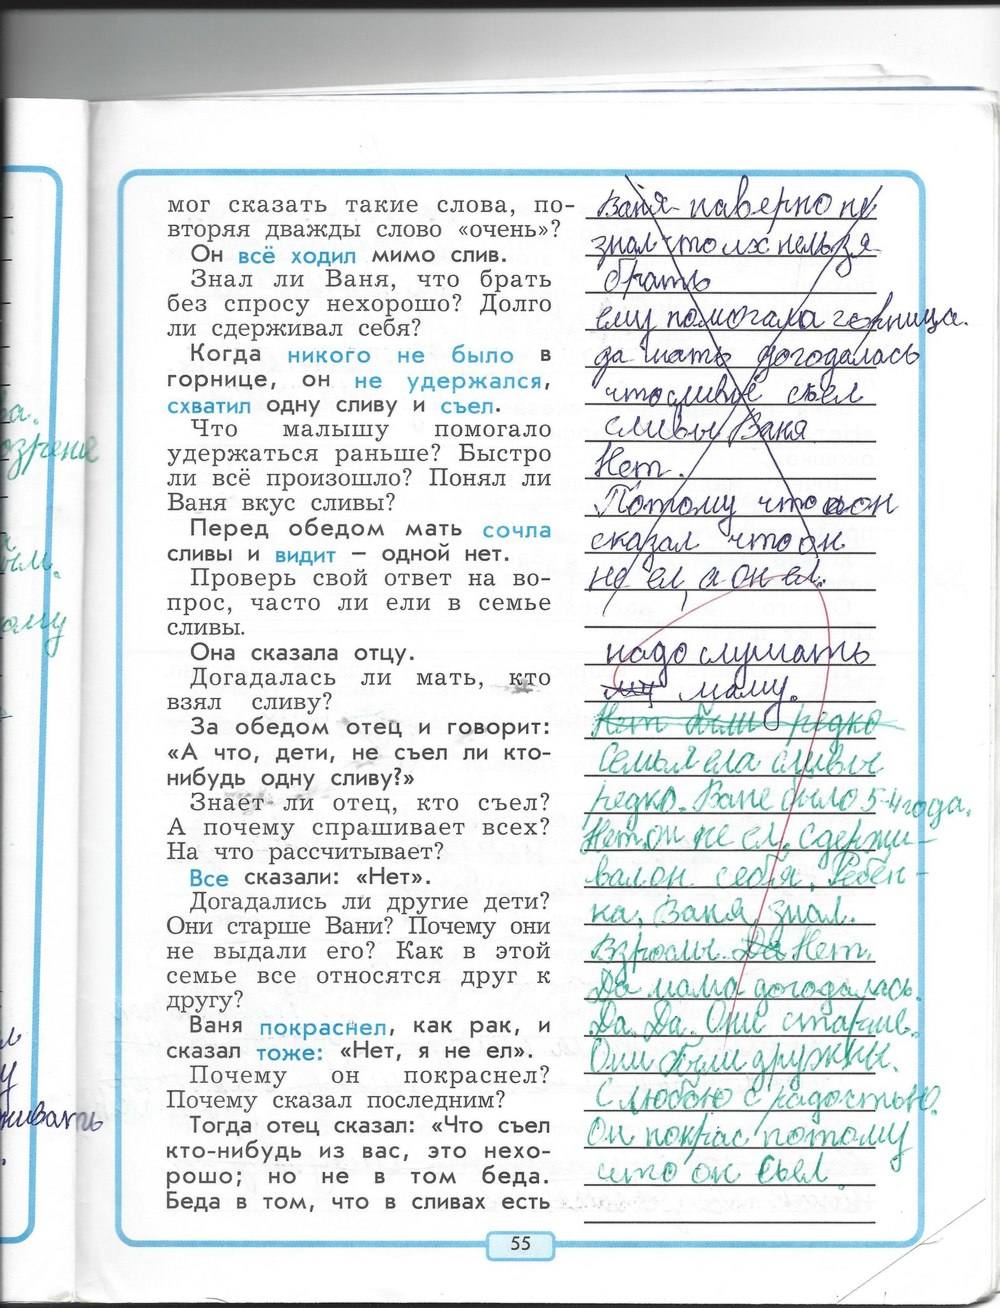 мог сказать такие слова, по-
вторяя дважды слово «очень»?
Он всё ходил мимо слив.
Знал ли Ваня, что брать
без спросу нехорошо? Долго
ли сдерживал себя?
Когда никого не было в
горнице, он не удержался,
схватил одну сливу и съел.
Что малышу помогало
удержаться раньше? Быстро
ли всё произошло? Понял ли
Ваня вкус сливы?
Перед обедом мать сочла
сливы и видит – одной нет.
Проверь свой ответ на во-
прос, часто ли ели в семье
сливы.
Она сказала отцу.
Догадалась ли мать, кто
взял сливу?
За обедом отец и говорит:
«А что, дети, не съел ли кто-
нибудь одну сливу?»
Знает ли отец, кто съел?
А почему спрашивает всех?
На что рассчитывает?
Все сказали: «Нет».
Догадались ли другие дети?
Они старше Вани? Почему они
не выдали его? Как в этой
семье все относятся друг к
другу?
Ваня покраснел, как рак, и
сказал тоже: «Нет, я не ел».
Почему он покраснел?
Почему сказал последним?
Тогда отец сказал: «Что съел
кто-нибудь из вас, это нехо-
рошо; но не в том беда.
Беда в том, что в сливах есть
55
Ваня наверно не
знал что их нельзя
брать
ему помогала горница.
да мать догодалась
что сливы съел
сливы Ваня
Нет.
Потому что он
сказал что он
не ел, а он ел.
надо слушать
маму.
Нет были редко
Семья ела сливы
редко. Ване было 5-4 года.
Нет он не ел. Сдержи-
вал он себя. Ребён-
ка. Ваня знал.
Взрослы. Да Нет.
Да мама догодалась.
Да. Да. Они старше.
Они были дружны.
С любовю с радостью.
Он покрас потому
что он съел.
ба.
озрение
ым.
аму
л
у
живать